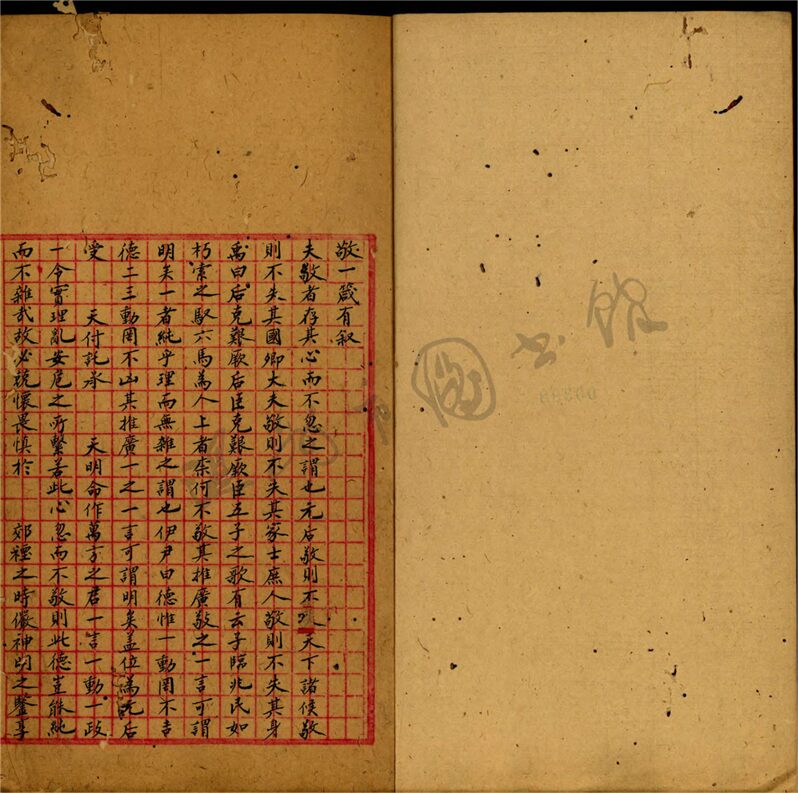 敬一箴有叙
夫敬者存其心而不忽之謂也元后敬則不天下諸侯敬
則不失其國卿大夫敬則不失其家士庶人敬則不失其身
禹曰后克艱厥后臣克艱厥臣五子之歌有云予臨兆民如
朽索之馭六馬為人上者柰何不敬其推廣敬之一言可謂
明矣一者純乎理而無雜之謂也伊尹曰德惟一動罔不吉
德二三動罔不凶其推廣一之一言可謂明矣盖位為元后
受 天付託承 天明命作萬方之君一言一動一政
一令實理亂安危之所繫若此心忽而不敬則此德豈能純
而不雜哉故必兢懷畏慎於 郊禋之時儼神明之鑒享